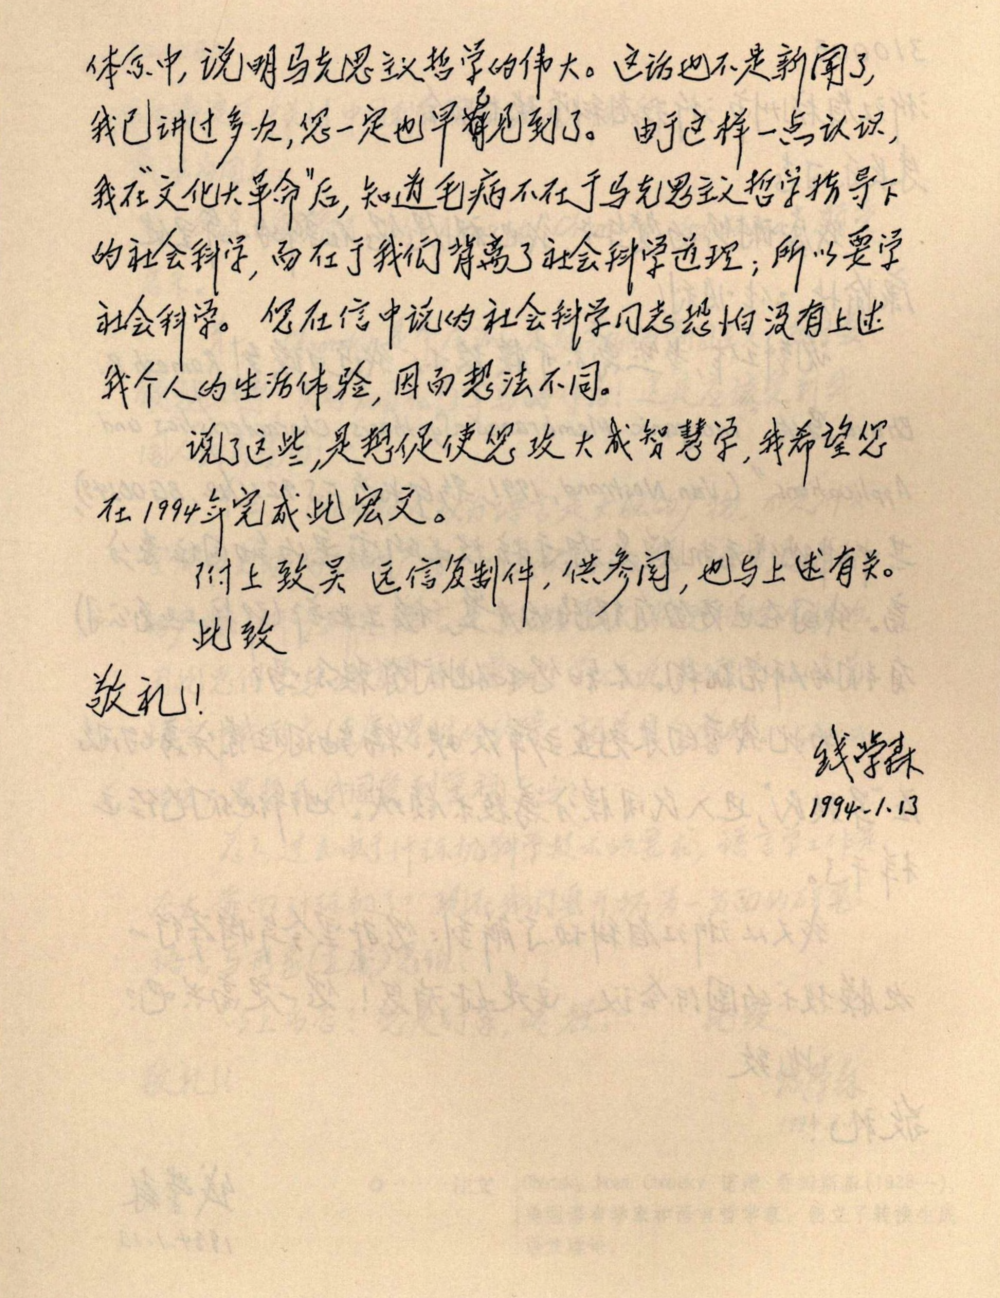 体系中，说明马克思主义哲学的伟大。这话也不是新闻了，
我已讲过多次，您一定也早已见到了。由于这样一点认识，
我在“文化大革命”后，知道毛病不在于马克思主义哲学指导下
的社会科学，而在于我们背离了社会科学道理；所以要学
社会科学。您在信中说的社会科学同志恐怕没有上述
我个人的生活体验，因而想法不同。
说了这些，是想促使您攻大成智慧学，我希望您
在1994年完成此宏文。
附上致吴 远信复制件，供参阅，也与上述有关。
此致
敬礼！
钱学森
1994.1.13